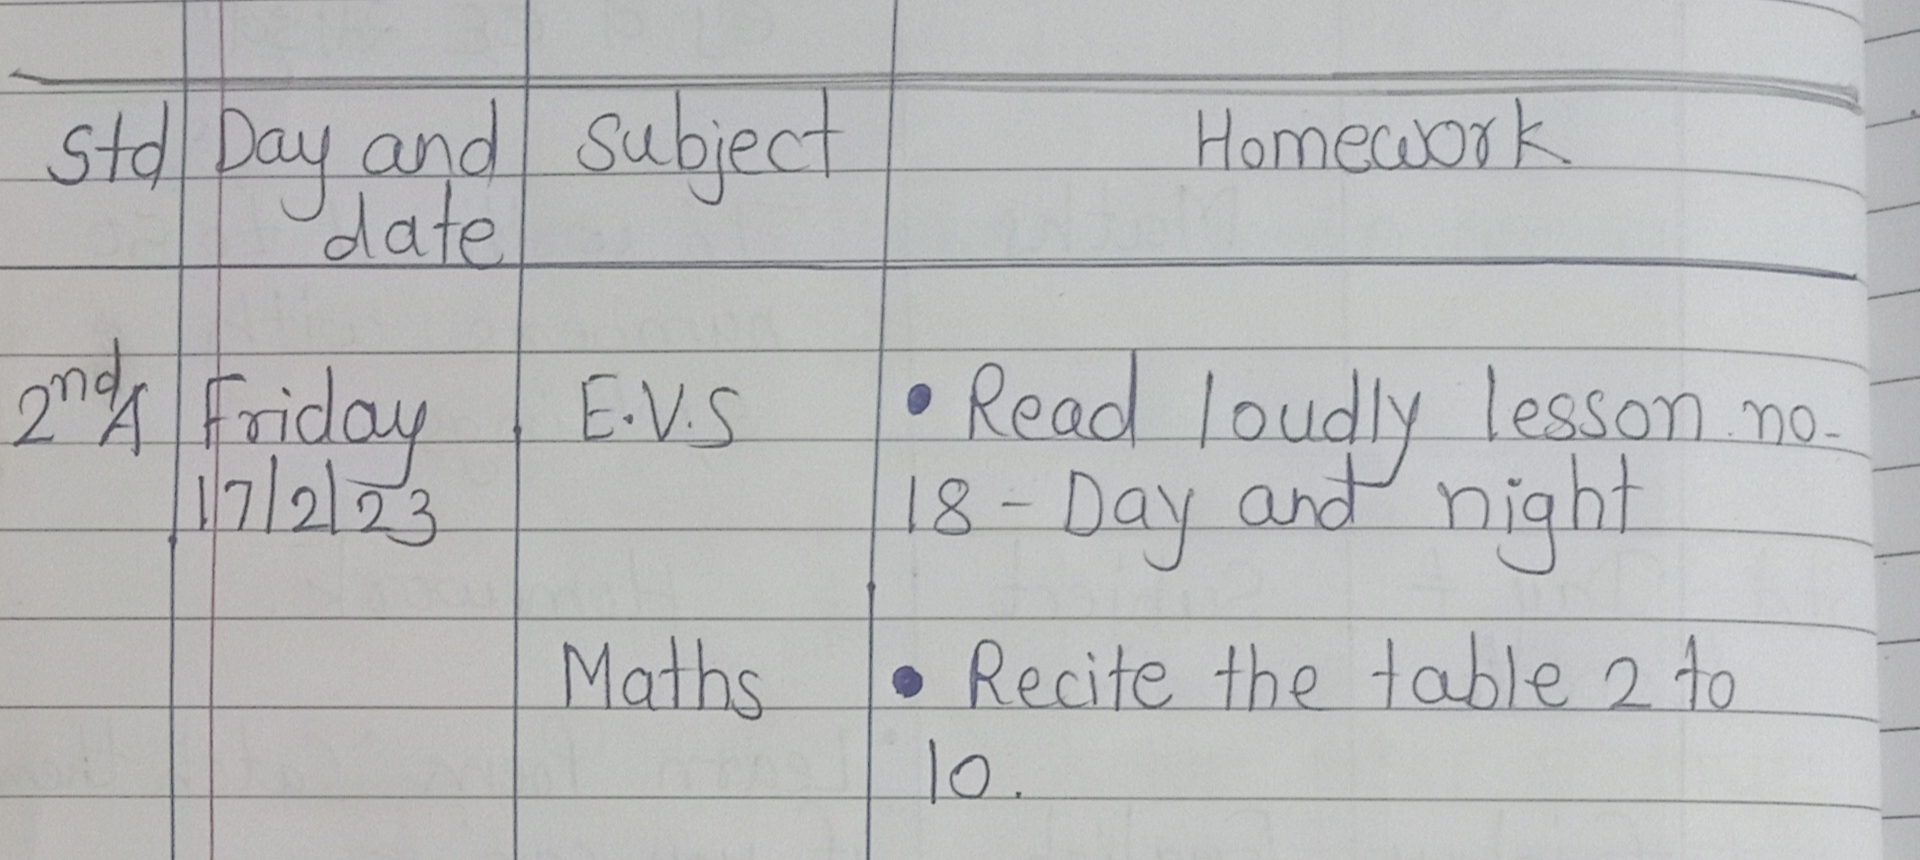 Std Day and Subject Homework
date
2nd A Friday E.V.S • Read loudly lesson no.
17/2/23 18 - Day and night
Maths • Recite the table 2 to
10.